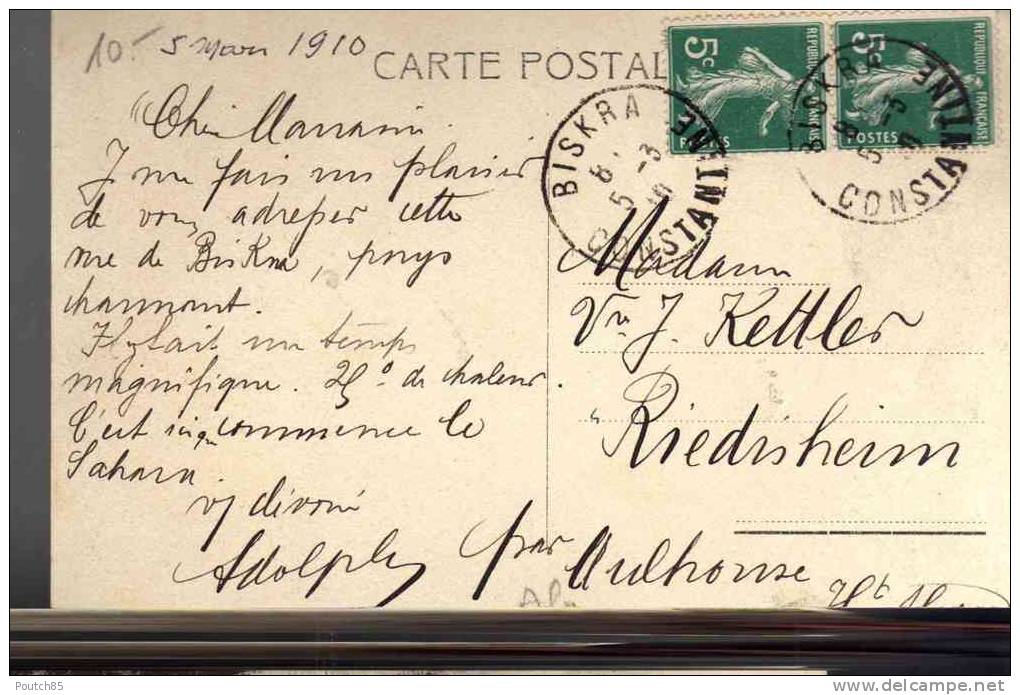 10.-
5 mars 1910
CARTE POSTAL
Chère Marraine
Je me fais un plaisir
de vous adresser cette
vue de Biskra, pays
charmant.
Il y fait un temps
magnifique. 25° de chaleur.
C'est ici que commence le
Sahara.
v/ dévoué
Adolphe
5c
REPUBLIQUE FRANÇAISE
POSTES
5c
REPUBLIQUE FRANÇAISE
POSTES
BISKRA
5 -3
CONSTANTINE
BISKRA
5 -3
CONSTANTINE
Madame
Vve J. Kettler
Riedisheim
par Mulhouse
Ht
Poutch85